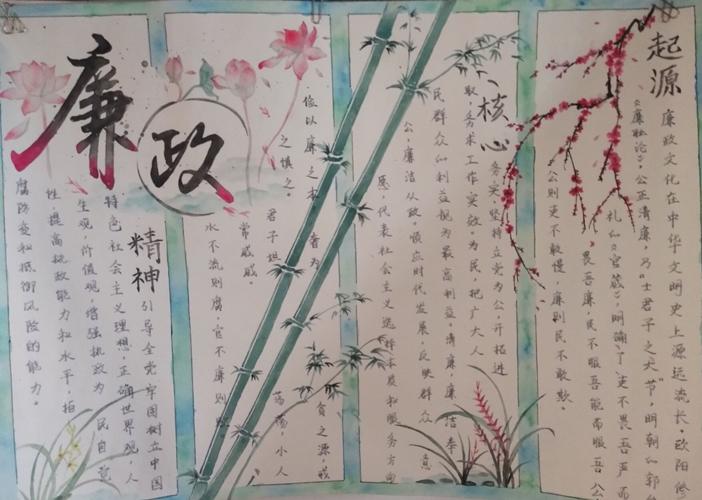 廉政
起源
廉政文化在中华文明史上源远流长。欧阳修
《廉耻论》:公正清廉,乃“士君子之大节”,明朝和郭
礼和《官箴》,明确了“吏不畏吾严而
畏吾廉,民不服吾能而服吾公
公则吏不敢慢,廉则民不敢欺。
核心
务实,坚持立党为公,开拓进
取,务求工作实效,为民,把广大人
民群众和利益视为最高利益。清廉,廉洁奉
公,廉洁从政,顺应时代发展,反映群众意
愿,代表社会主义选择本质和服务方向
俭以廉之本,奢为贪之源,戒
之慎之。
君子坦荡荡,小人
常戚戚。
水不流则腐,官不廉则
精神
引导全党牢固树立中国
特色社会主义理想,正确世界观,人
生观,价值观,增强执政为民自觉
性,提高执政能力和水平,拒
腐防变和抵御风险的能力。